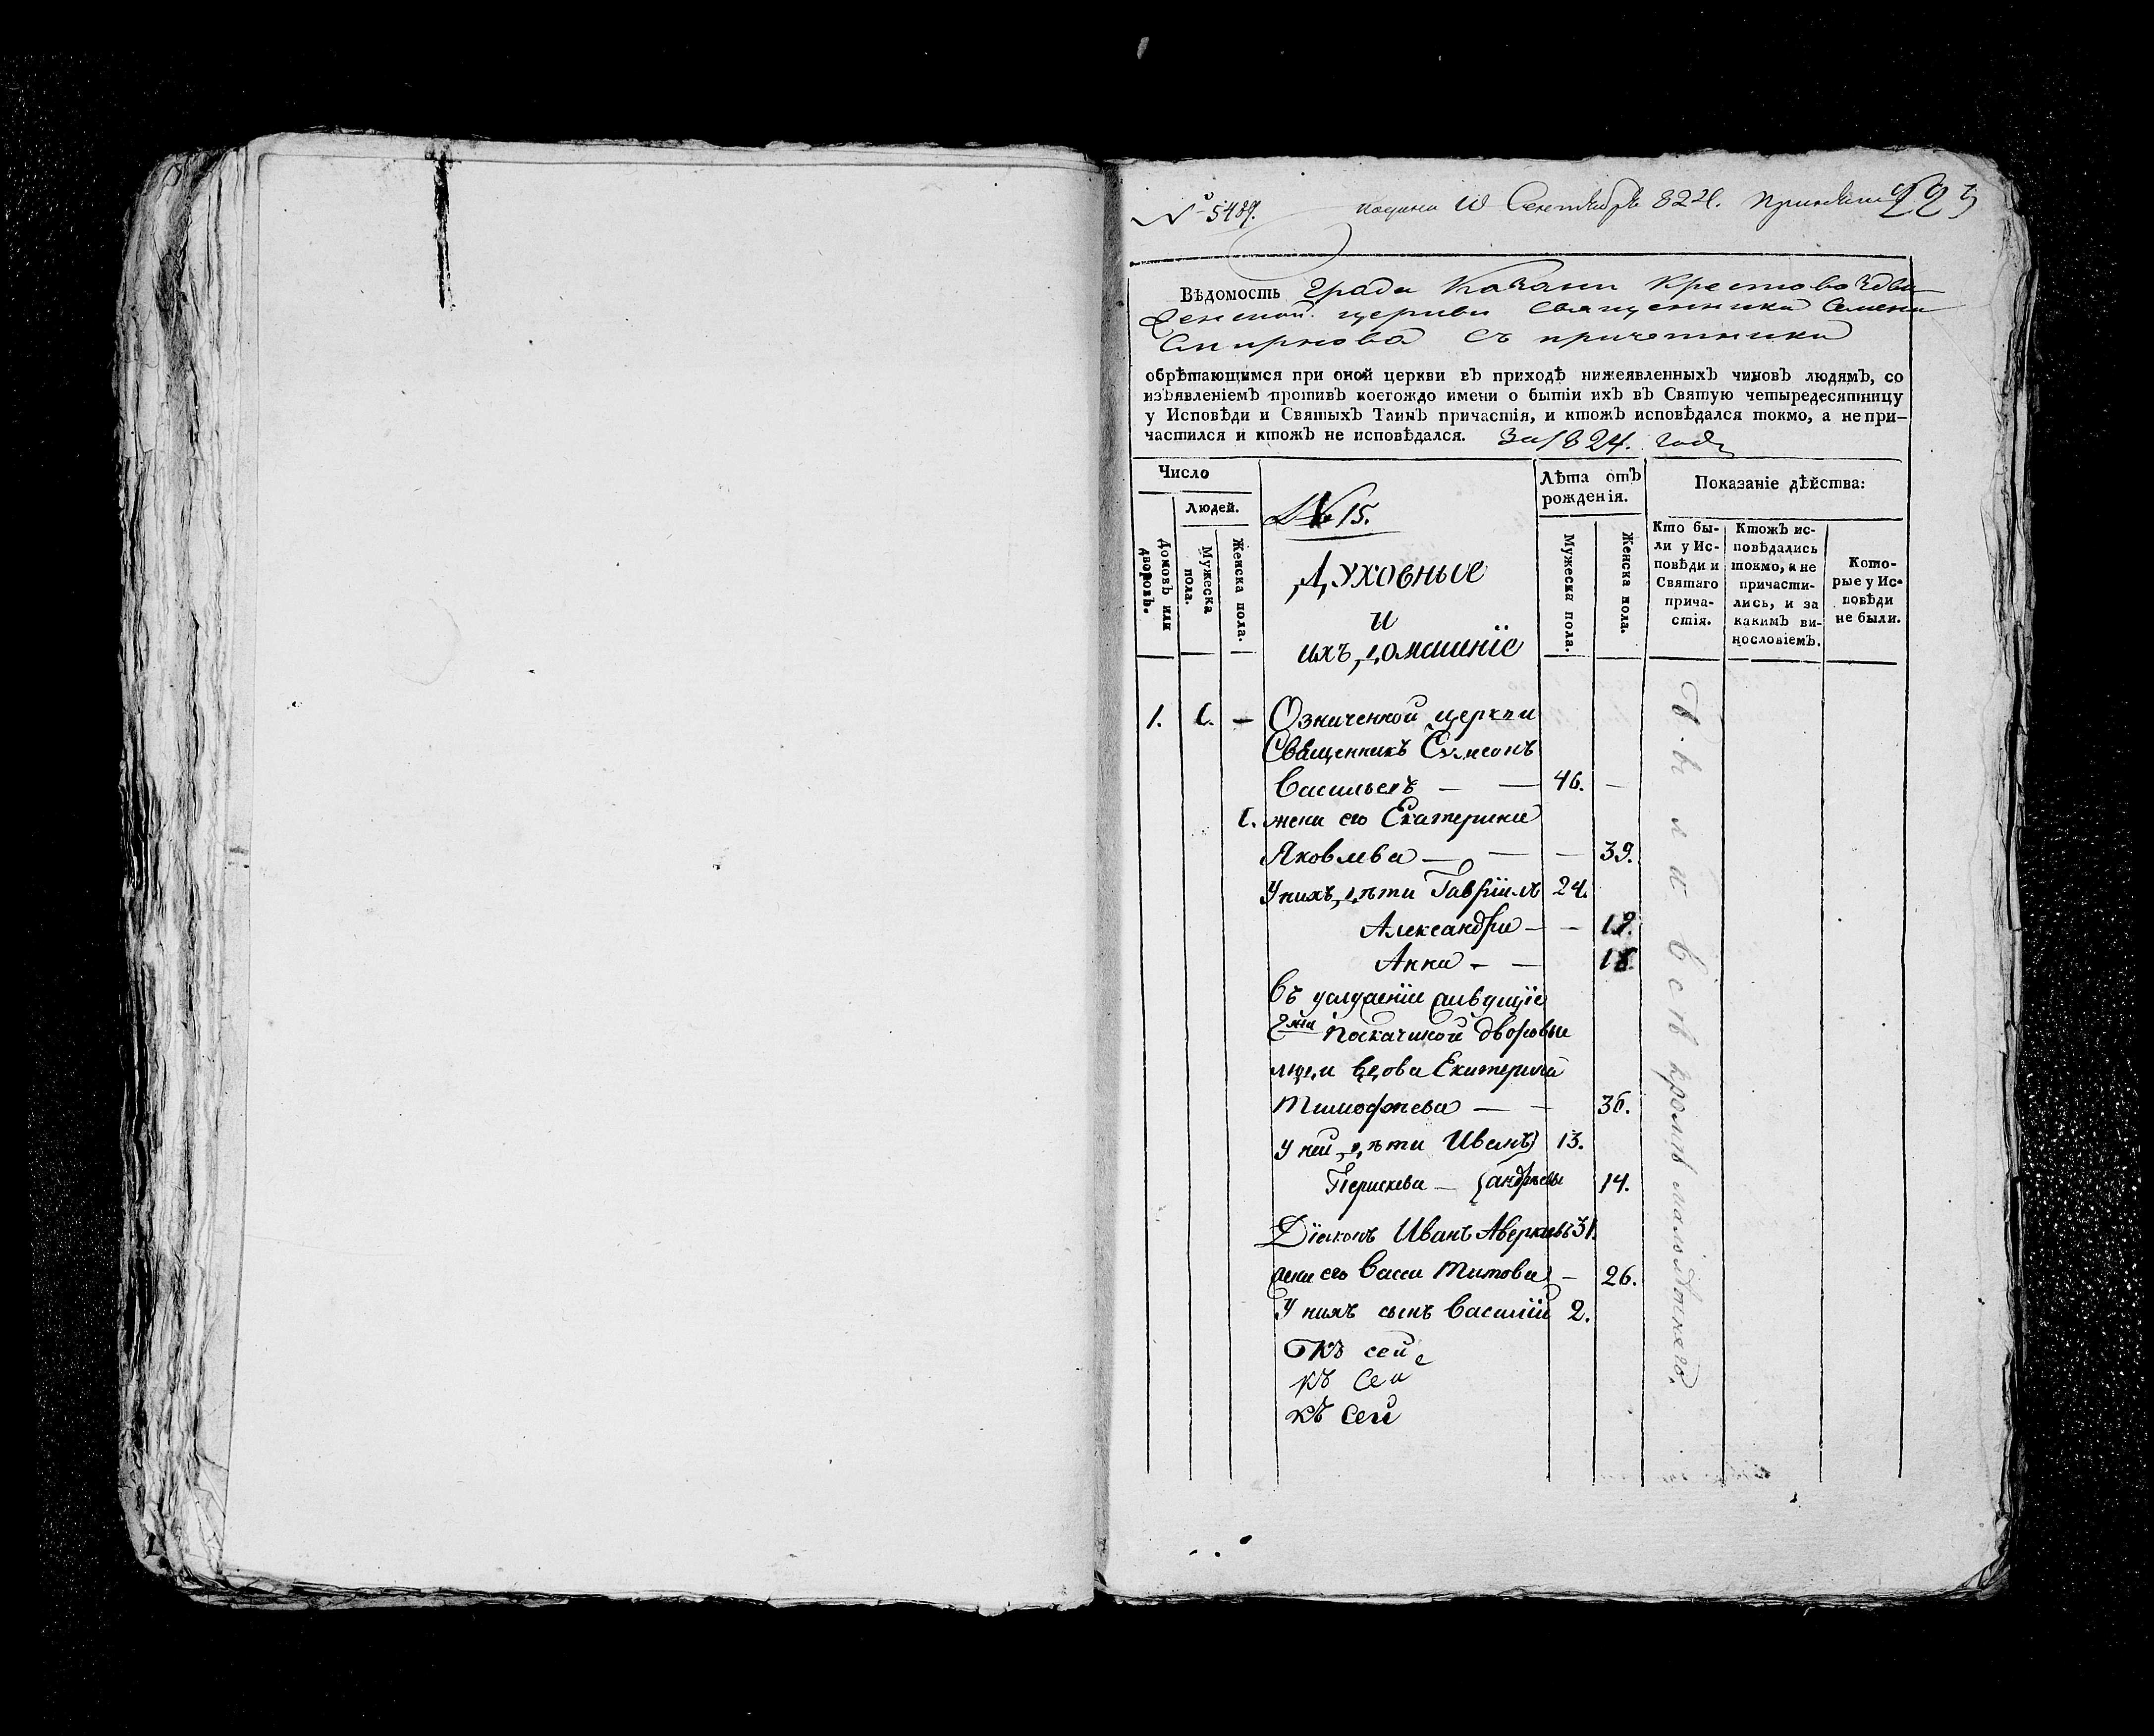 № 5489. подана 10 Сентября 824.
223
Вѣдомость града Казани Крестовоздви-
женской церкви священника Семена
Смирнова съ причетники
обрѣтающимся при оной церкви въ приходѣ нижеявленныхъ чиновъ людямъ, со
изъявленіемъ противъ коегождо имени о бытіи ихъ въ Святую четыредесятницу
у Исповѣди и Святыхъ Таинъ причастія, и ктожъ исповѣдался токмо, а не при-
частился и ктожъ не исповѣдался. За 1824. годъ
Число
Людей.
Домовъ или дворовъ.
Мужеска пола.
Женска пола.
№ 15.
Духовные
и
ихъ домашніе
Лѣта отъ рожденія.
Мужеска пола.
Женска пола.
Показаніе дѣйства:
Кто бы-
ли у Ис-
повѣди и
Святаго
прича-
стія.
Ктожъ ис-
повѣдались
токмо, а не
причасти-
лись, и за
какимъ ви-
нословіемъ.
Кото-
рые у Ис-
повѣди
не были.
1. 1. — Означенной церкви
Священникъ Сумеонъ
Васильевъ — — 46. —
1. жена его Екатерина
Яковлева — — — 39.
У нихъ дѣти Гавріилъ 24.
Александра — — 19.
Анна — — 18.
Въ услуженіе живущіе
Поскачиной дворовые
люди вдова Екатерина
Тимофѣева — — 36.
У ней дѣти Иванъ 13.
Параскева — Андреевы 14.
Діаконъ Иванъ Аверкіевъ 31.
жена его Васса Титова — 26.
У нихъ сынъ Василій 2.
Къ сей
къ сей
къ сей
Были всѣ кромѣ малолѣтняго.